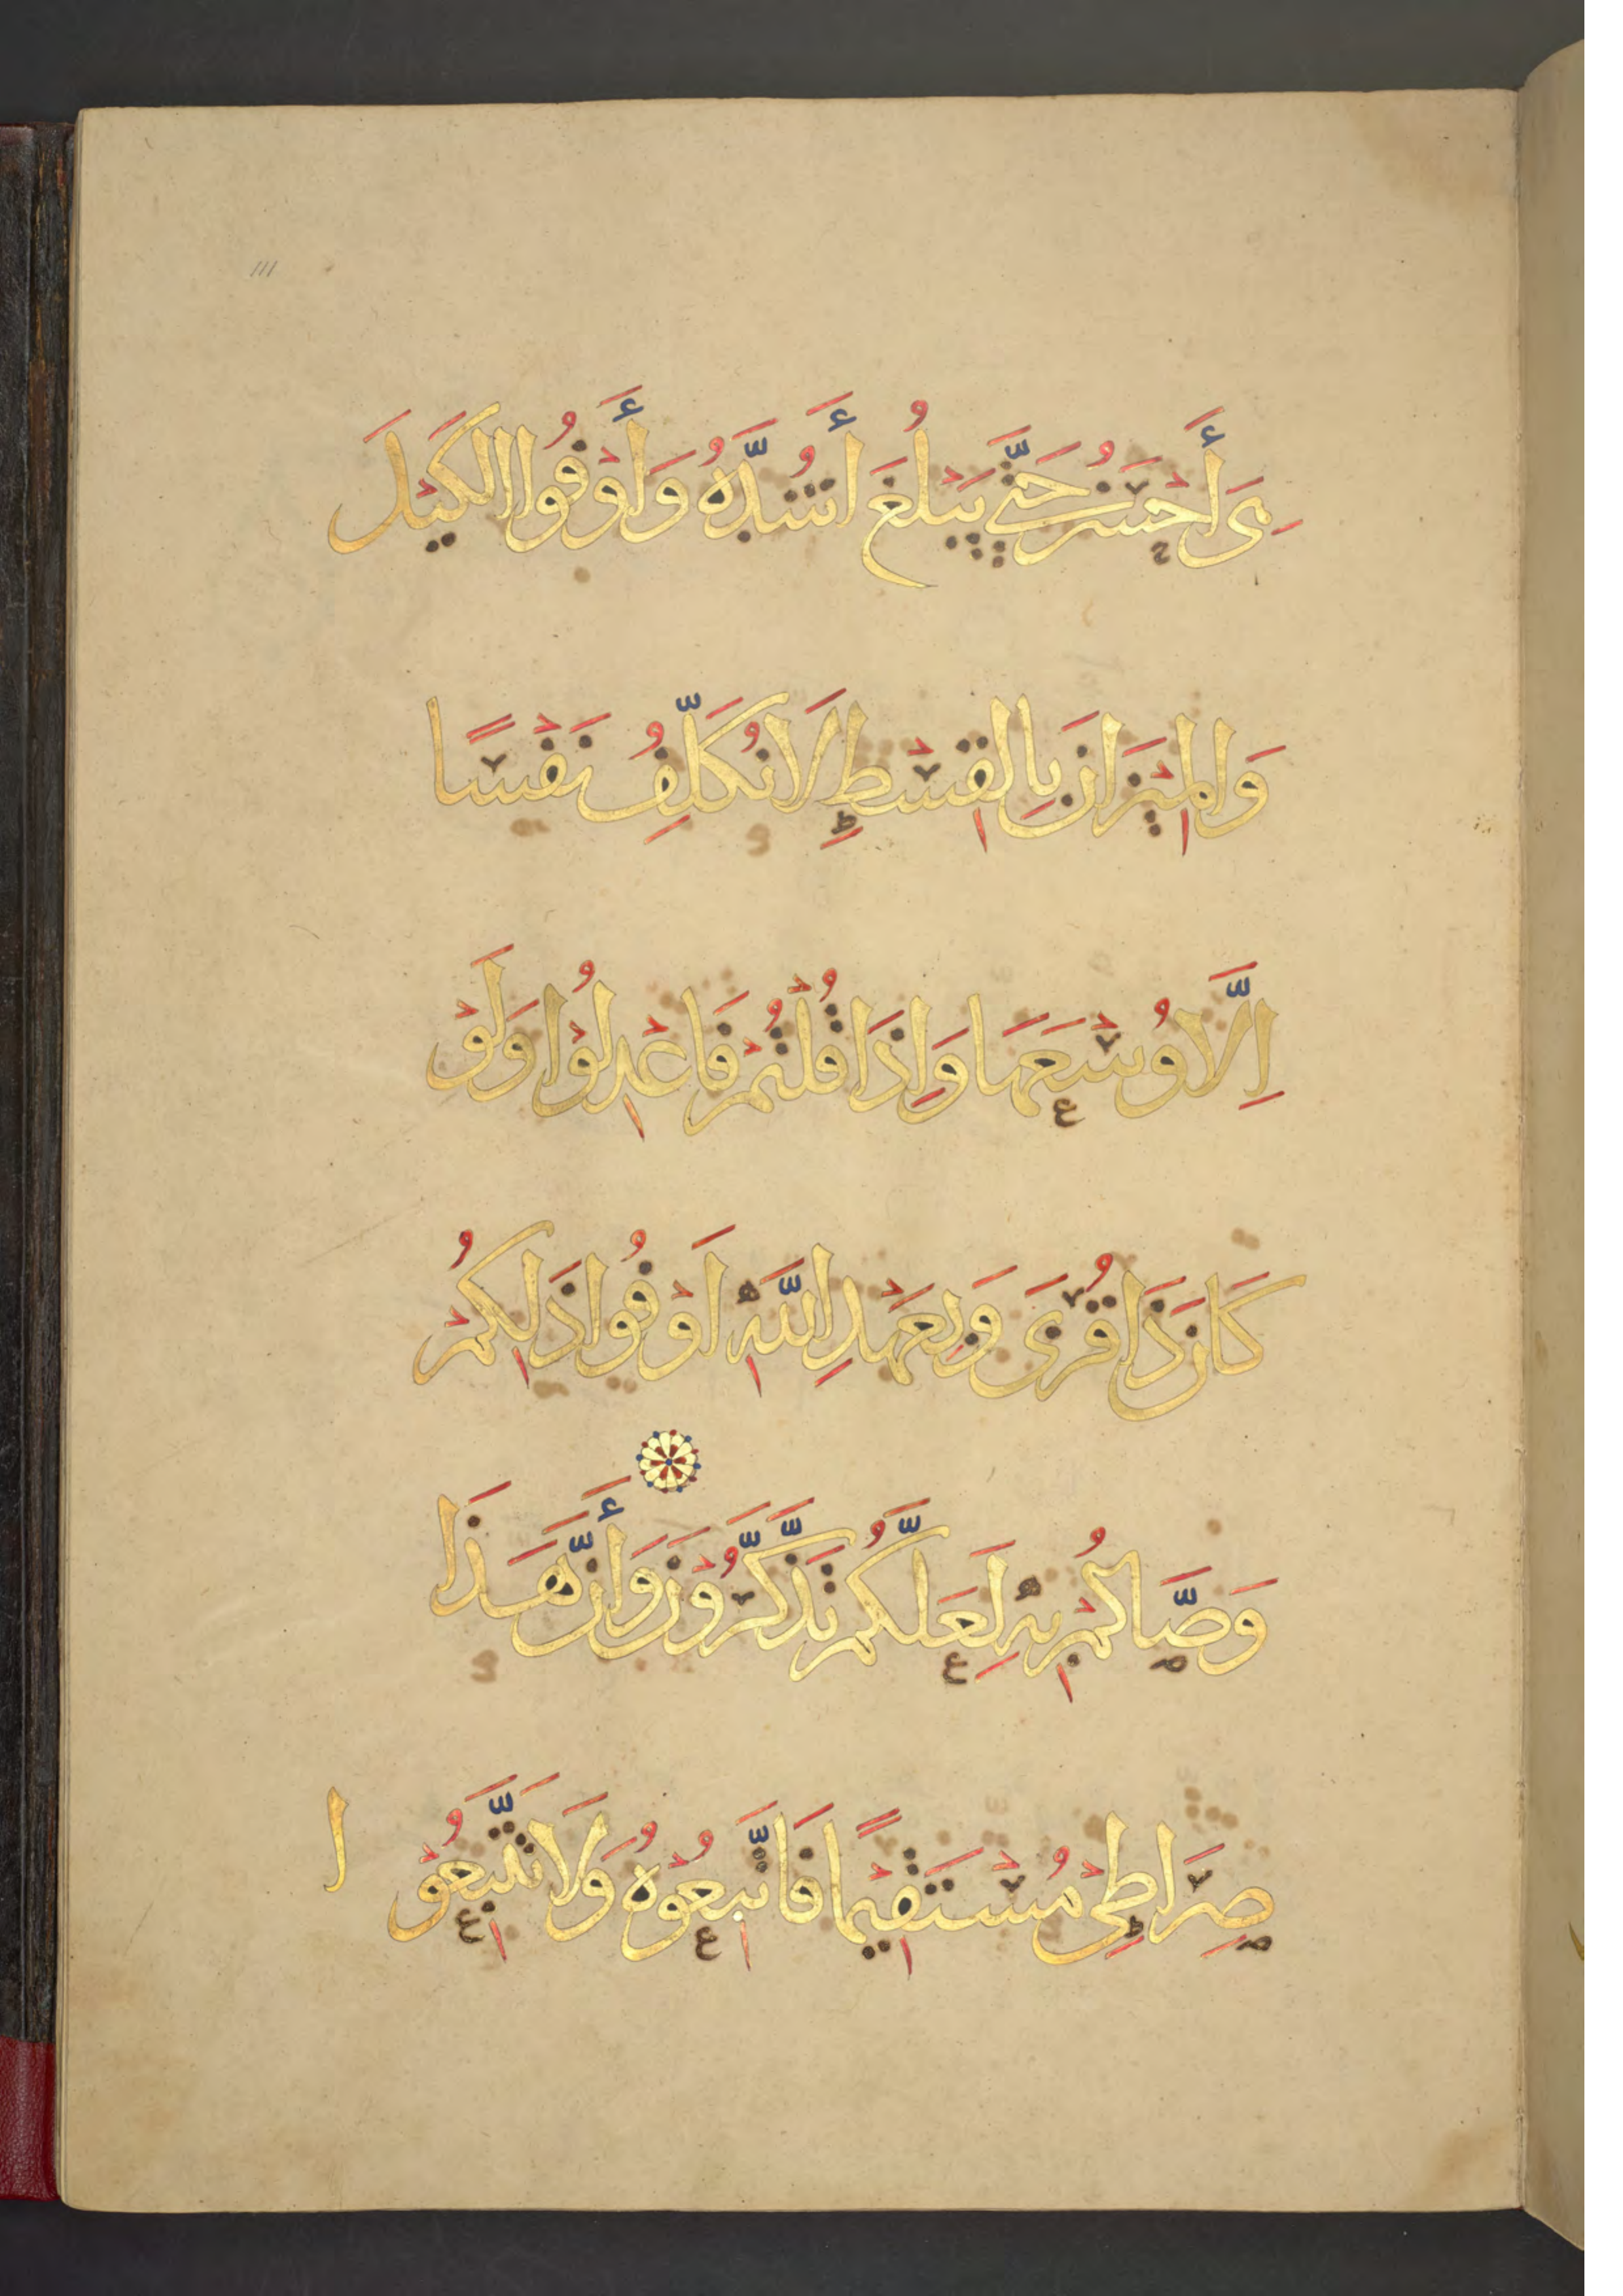 111
هِىَ أَحْسَنُ حَتَّى يَبْلُغَ أَشُدَّهُ وَأَوْفُوا الكَيْلَ
وَالمِيْزَانَ بِالقِسْطِ لَا نُكَلِّفُ نَفْسًا
اِلَّا وُسْعَهَا وَاِذَا قُلْتُمْ فَاعْدِلُوْا وَلَوْ
كَانَ ذَا قُرْبَى وَبِعَهْدِ اللَّهِ اَوْفُوا ذَلِكُمْ
وَصَّاكُمْ بِهِ لَعَلَّكُمْ تَذَّكَّرُوْنَ وَأَنَّ هَذَا
صِرَاطِيْ مُسْتَقِيْمًا فَاتَّبِعُوْهُ وَلَا تَتَّبِعُوْا